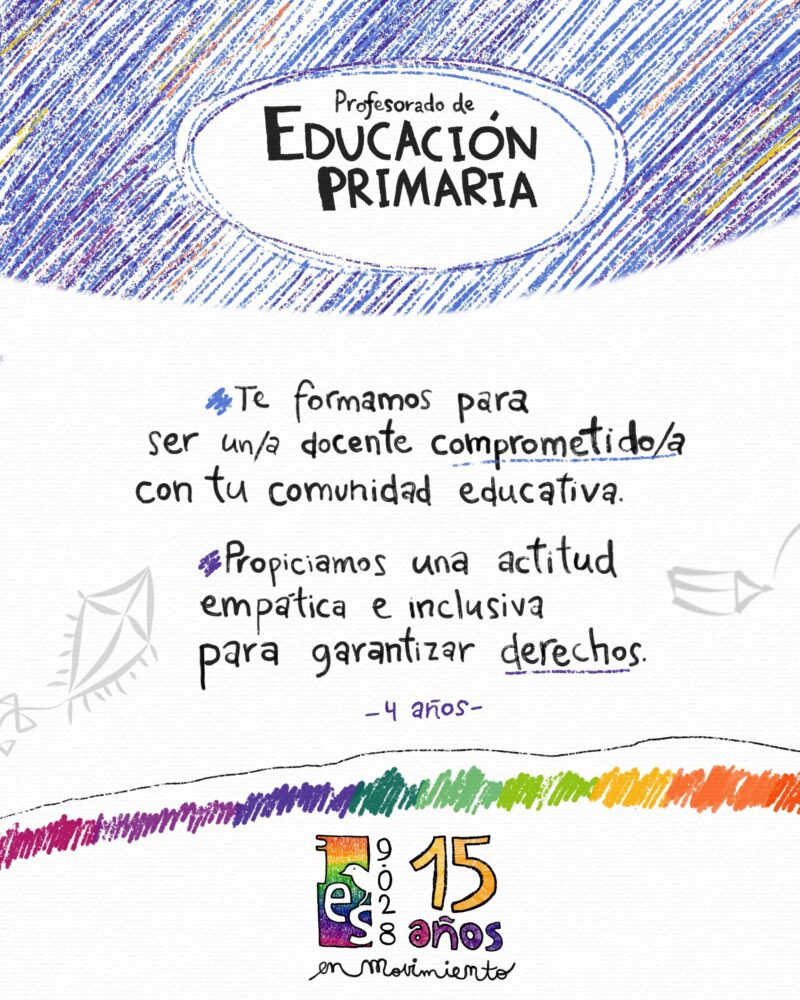 Profesorado de
EDUCACIÓN
PRIMARIA
Te formamos para
ser un/a docente comprometido/a
con tu comunidad educativa.
Propiciamos una actitud
empática e inclusiva
para garantizar derechos.
-4 años-
ies
9.028
15
años
en movimiento